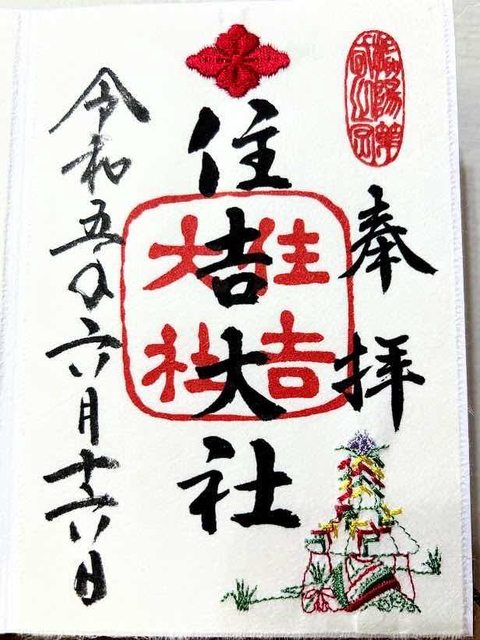 奉拝
住吉大社
住吉
大社
令和五年六月十六日